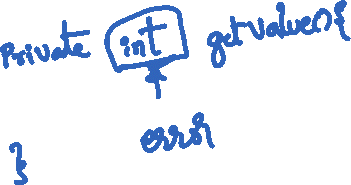 Private int getValue(){
error
}